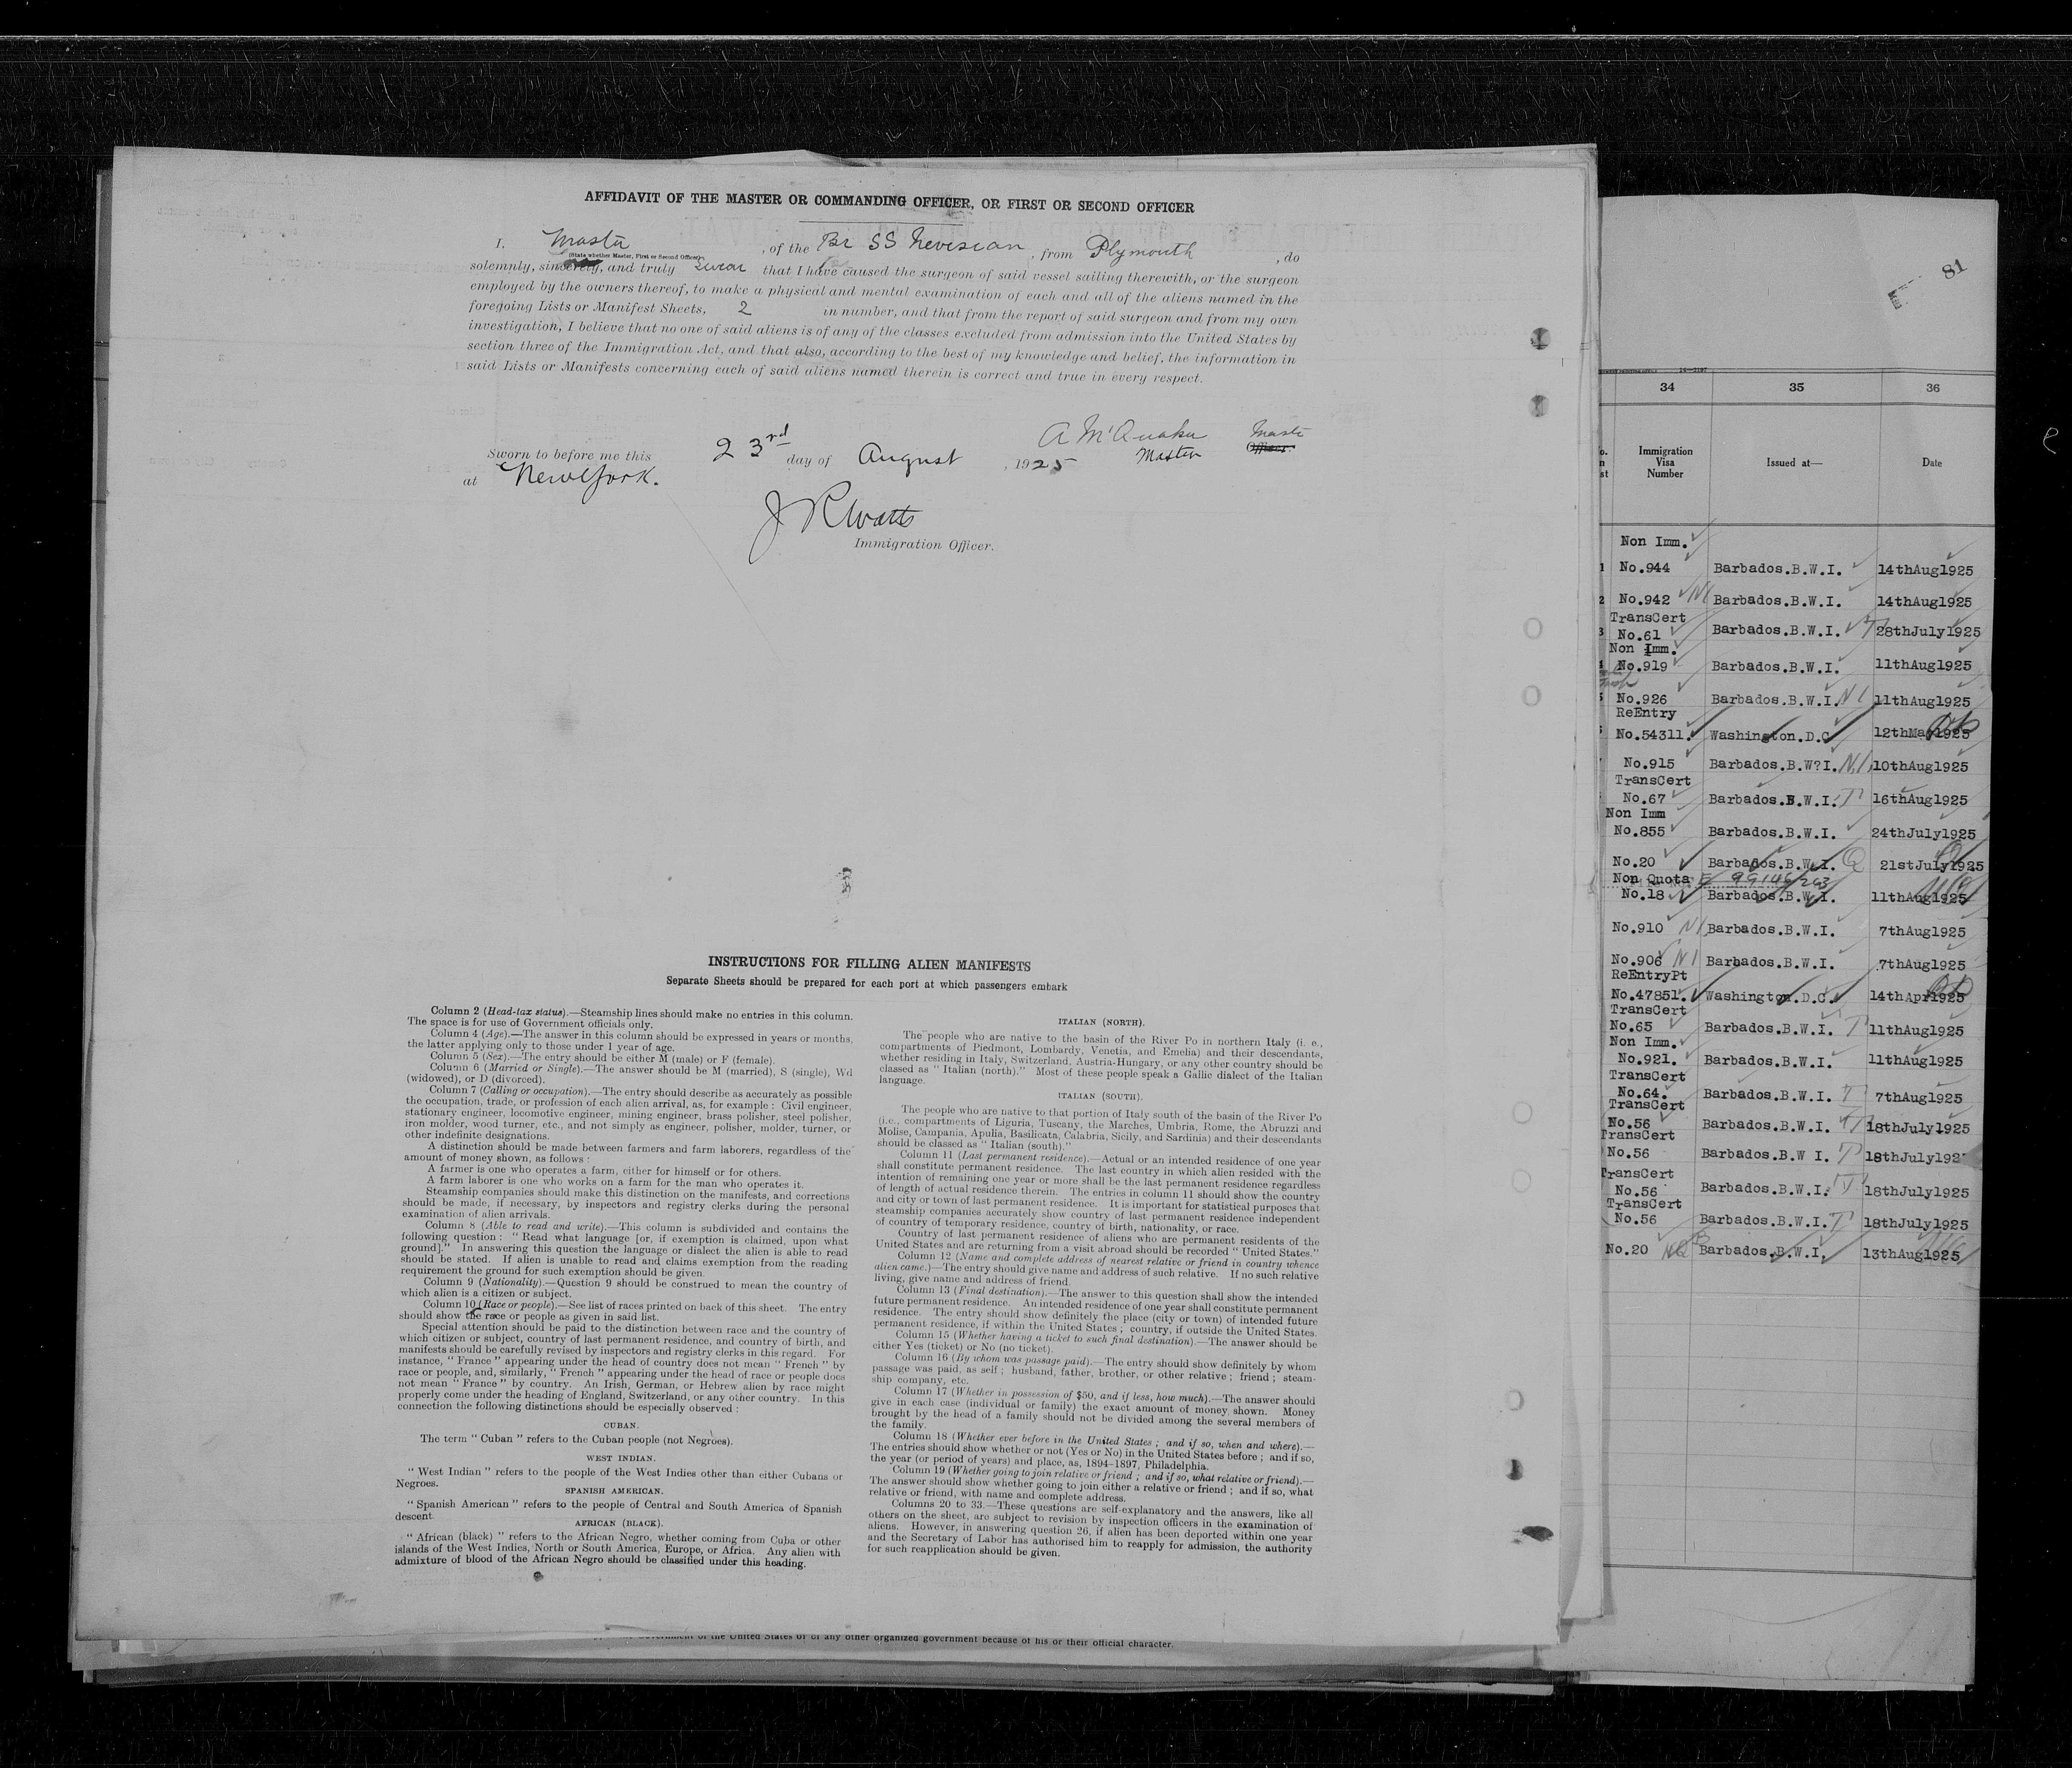 AFFIDAVIT OF THE MASTER OR COMMANDING OFFICER, OR FIRST OR SECOND OFFICER
I, Master, of the Br SS Nevisian, from Plymouth, do
(State whether Master, First or Second Officer)
solemnly, sincerely, and truly swear that I have caused the surgeon of said vessel sailing therewith, or the surgeon
employed by the owners thereof, to make a physical and mental examination of each and all of the aliens named in the
foregoing Lists or Manifest Sheets, 2 in number, and that from the report of said surgeon and from my own
investigation, I believe that no one of said aliens is of any of the classes excluded from admission into the United States by
section three of the Immigration Act, and that also, according to the best of my knowledge and belief, the information in
said Lists or Manifests concerning each of said aliens named therein is correct and true in every respect.
Master
Officer.
Sworn to before me this 23rd day of August, 1925 Master
at New York.
J R Watts
Immigration Officer.
INSTRUCTIONS FOR FILLING ALIEN MANIFESTS
Separate Sheets should be prepared for each port at which passengers embark
Column 2 (Head-tax status).—Steamship lines should make no entries in this column.
The space is for use of Government officials only.
Column 4 (Age).—The answer in this column should be expressed in years or months,
the latter applying only to those under 1 year of age.
Column 5 (Sex).—The entry should be either M (male) or F (female).
Column 6 (Married or Single).—The answer should be M (married), S (single), Wd
(widowed), or D (divorced).
Column 7 (Calling or occupation).—The entry should describe as accurately as possible
the occupation, trade, or profession of each alien arrival, as, for example : Civil engineer,
stationary engineer, locomotive engineer, mining engineer, brass polisher, steel polisher,
iron molder, wood turner, etc., and not simply as engineer, polisher, molder, turner, or
other indefinite designations.
A distinction should be made between farmers and farm laborers, regardless of the
amount of money shown, as follows :
A farmer is one who operates a farm, either for himself or for others.
A farm laborer is one who works on a farm for the man who operates it.
Steamship companies should make this distinction on the manifests, and corrections
should be made, if necessary, by inspectors and registry clerks during the personal
examination of alien arrivals.
Column 8 (Able to read and write).—This column is subdivided and contains the
following question : “ Read what language [or, if exemption is claimed, upon what
ground].” In answering this question the language or dialect the alien is able to read
should be stated. If alien is unable to read and claims exemption from the reading
requirement the ground for such exemption should be given.
Column 9 (Nationality).—Question 9 should be construed to mean the country of
which alien is a citizen or subject.
Column 10 (Race or people).—See list of races printed on back of this sheet. The entry
should show the race or people as given in said list.
Special attention should be paid to the distinction between race and the country of
which citizen or subject, country of last permanent residence, and country of birth, and
manifests should be carefully revised by inspectors and registry clerks in this regard. For
instance, “ France ” appearing under the head of country does not mean “ French ” by
race or people, and, similarly, “ French ” appearing under the head of race or people does
not mean “ France ” by country. An Irish, German, or Hebrew alien by race might
properly come under the heading of England, Switzerland, or any other country. In this
connection the following distinctions should be especially observed :
CUBAN.
The term “ Cuban ” refers to the Cuban people (not Negroes).
WEST INDIAN.
“ West Indian ” refers to the people of the West Indies other than either Cubans or
Negroes.
SPANISH AMERICAN.
“ Spanish American ” refers to the people of Central and South America of Spanish
descent.
AFRICAN (BLACK).
“ African (black) ” refers to the African Negro, whether coming from Cuba or other
islands of the West Indies, North or South America, Europe, or Africa. Any alien with
admixture of blood of the African Negro should be classified under this heading.
ITALIAN (NORTH).
The people who are native to the basin of the River Po in northern Italy (i. e.,
compartments of Piedmont, Lombardy, Venetia, and Emelia) and their descendants,
whether residing in Italy, Switzerland, Austria-Hungary, or any other country should be
classed as “ Italian (north).” Most of these people speak a Gallic dialect of the Italian
language.
ITALIAN (SOUTH).
The people who are native to that portion of Italy south of the basin of the River Po
(i.e., compartments of Liguria, Tuscany, the Marches, Umbria, Rome, the Abruzzi and
Molise, Campania, Apulia, Basilicata, Calabria, Sicily, and Sardinia) and their descendants
should be classed as “ Italian (south).”
Column 11 (Last permanent residence).—Actual or an intended residence of one year
shall constitute permanent residence. The last country in which alien resided with the
intention of remaining one year or more shall be the last permanent residence regardless
of length of actual residence therein. The entries in column 11 should show the country
and city or town of last permanent residence. It is important for statistical purposes that
steamship companies accurately show country of last permanent residence independent
of country of temporary residence, country of birth, nationality, or race.
Country of last permanent residence of aliens who are permanent residents of the
United States and are returning from a visit abroad should be recorded “ United States.”
Column 12 (Name and complete address of nearest relative or friend in country whence
alien came.)—The entry should give name and address of such relative. If no such relative
living, give name and address of friend.
Column 13 (Final destination).—The answer to this question shall show the intended
future permanent residence. An intended residence of one year shall constitute permanent
residence. The entry should show definitely the place (city or town) of intended future
permanent residence, if within the United States ; country, if outside the United States.
Column 15 (Whether having a ticket to such final destination).—The answer should be
either Yes (ticket) or No (no ticket).
Column 16 (By whom was passage paid).—The entry should show definitely by whom
passage was paid, as self ; husband, father, brother, or other relative ; friend ; steam-
ship company, etc.
Column 17 (Whether in possession of $50, and if less, how much).—The answer should
give in each case (individual or family) the exact amount of money shown. Money
brought by the head of a family should not be divided among the several members of
the family.
Column 18 (Whether ever before in the United States ; and if so, when and where).—
The entries should show whether or not (Yes or No) in the United States before ; and if so,
the year (or period of years) and place, as, 1894-1897, Philadelphia.
Column 19 (Whether going to join relative or friend ; and if so, what relative or friend).—
The answer should show whether going to join either a relative or friend ; and if so, what
relative or friend, with name and complete address.
Columns 20 to 33.—These questions are self-explanatory and the answers, like all
others on the sheet, are subject to revision by inspection officers in the examination of
aliens. However, in answering question 26, if alien has been deported within one year
and the Secretary of Labor has authorised him to reapply for admission, the authority
for such reapplication should be given.
Government of the United States or of any other organized government because of his or their official character.
81
34 35 36
Immigration Visa Number Issued at— Date
Non Imm.
No.944 Barbados.B.W.I. 14thAug1925
No.942 NI Barbados.B.W.I. 14thAug1925
TransCert
No.61 Barbados.B.W.I. T 28thJuly1925
Non Imm.
No.919 Barbados.B.W.I. 11thAug1925
No.926 Barbados.B.W.I. NI 11thAug1925
ReEntry
No.54311. Washington.D.C. 12thMay1925
No.915 Barbados.B.W?I. N.I. 10thAug1925
TransCert
No.67 Barbados.B.W.I. T 16thAug1925
Non Imm
No.855 Barbados.B.W.I. 24thJuly1925
No.20 Barbados.B.W.I. Q 21stJuly1925
Non Quota
No.18 Barbados.B.W.I. 11thAug1925
No.910 NI Barbados.B.W.I. 7thAug1925
No.906 NI Barbados.B.W.I. 7thAug1925
ReEntryPt
No.47851. Washington.D.C. 14thApr1925
TransCert
No.65 Barbados.B.W.I. T 11thAug1925
Non Imm.
No.921. Barbados.B.W.I. 11thAug1925
TransCert
No.64. Barbados.B.W.I. T 7thAug1925
TransCert
No.56 Barbados.B.W.I. T 18thJuly1925
TransCert
No.56 Barbados.B.W I. T 18thJuly192
TransCert
No.56 Barbados.B.W.I. T 18thJuly1925
TransCert
No.56 Barbados.B.W.I. T 18thJuly1925
No.20 Barbados.B.W.I. 13thAug1925